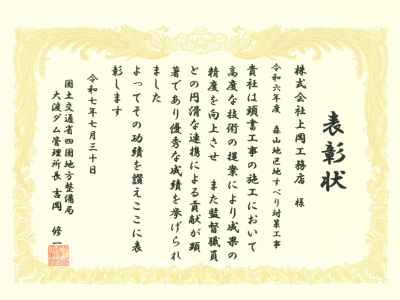 表彰状
株式会社上岡工務店 様
令和六年度 森山地区地すべり対策工事
貴社は頭書工事の施工において
高度な技術の提案により成果の
精度を向上させ また監督職員
との円滑な連携による貢献が顕
著であり優秀な成績を挙げられ
ました
よってその功績を讃えここに表
彰します
令和七年七月三十日
国土交通省四国地方整備局
大渡ダム管理所長 吉岡 修一